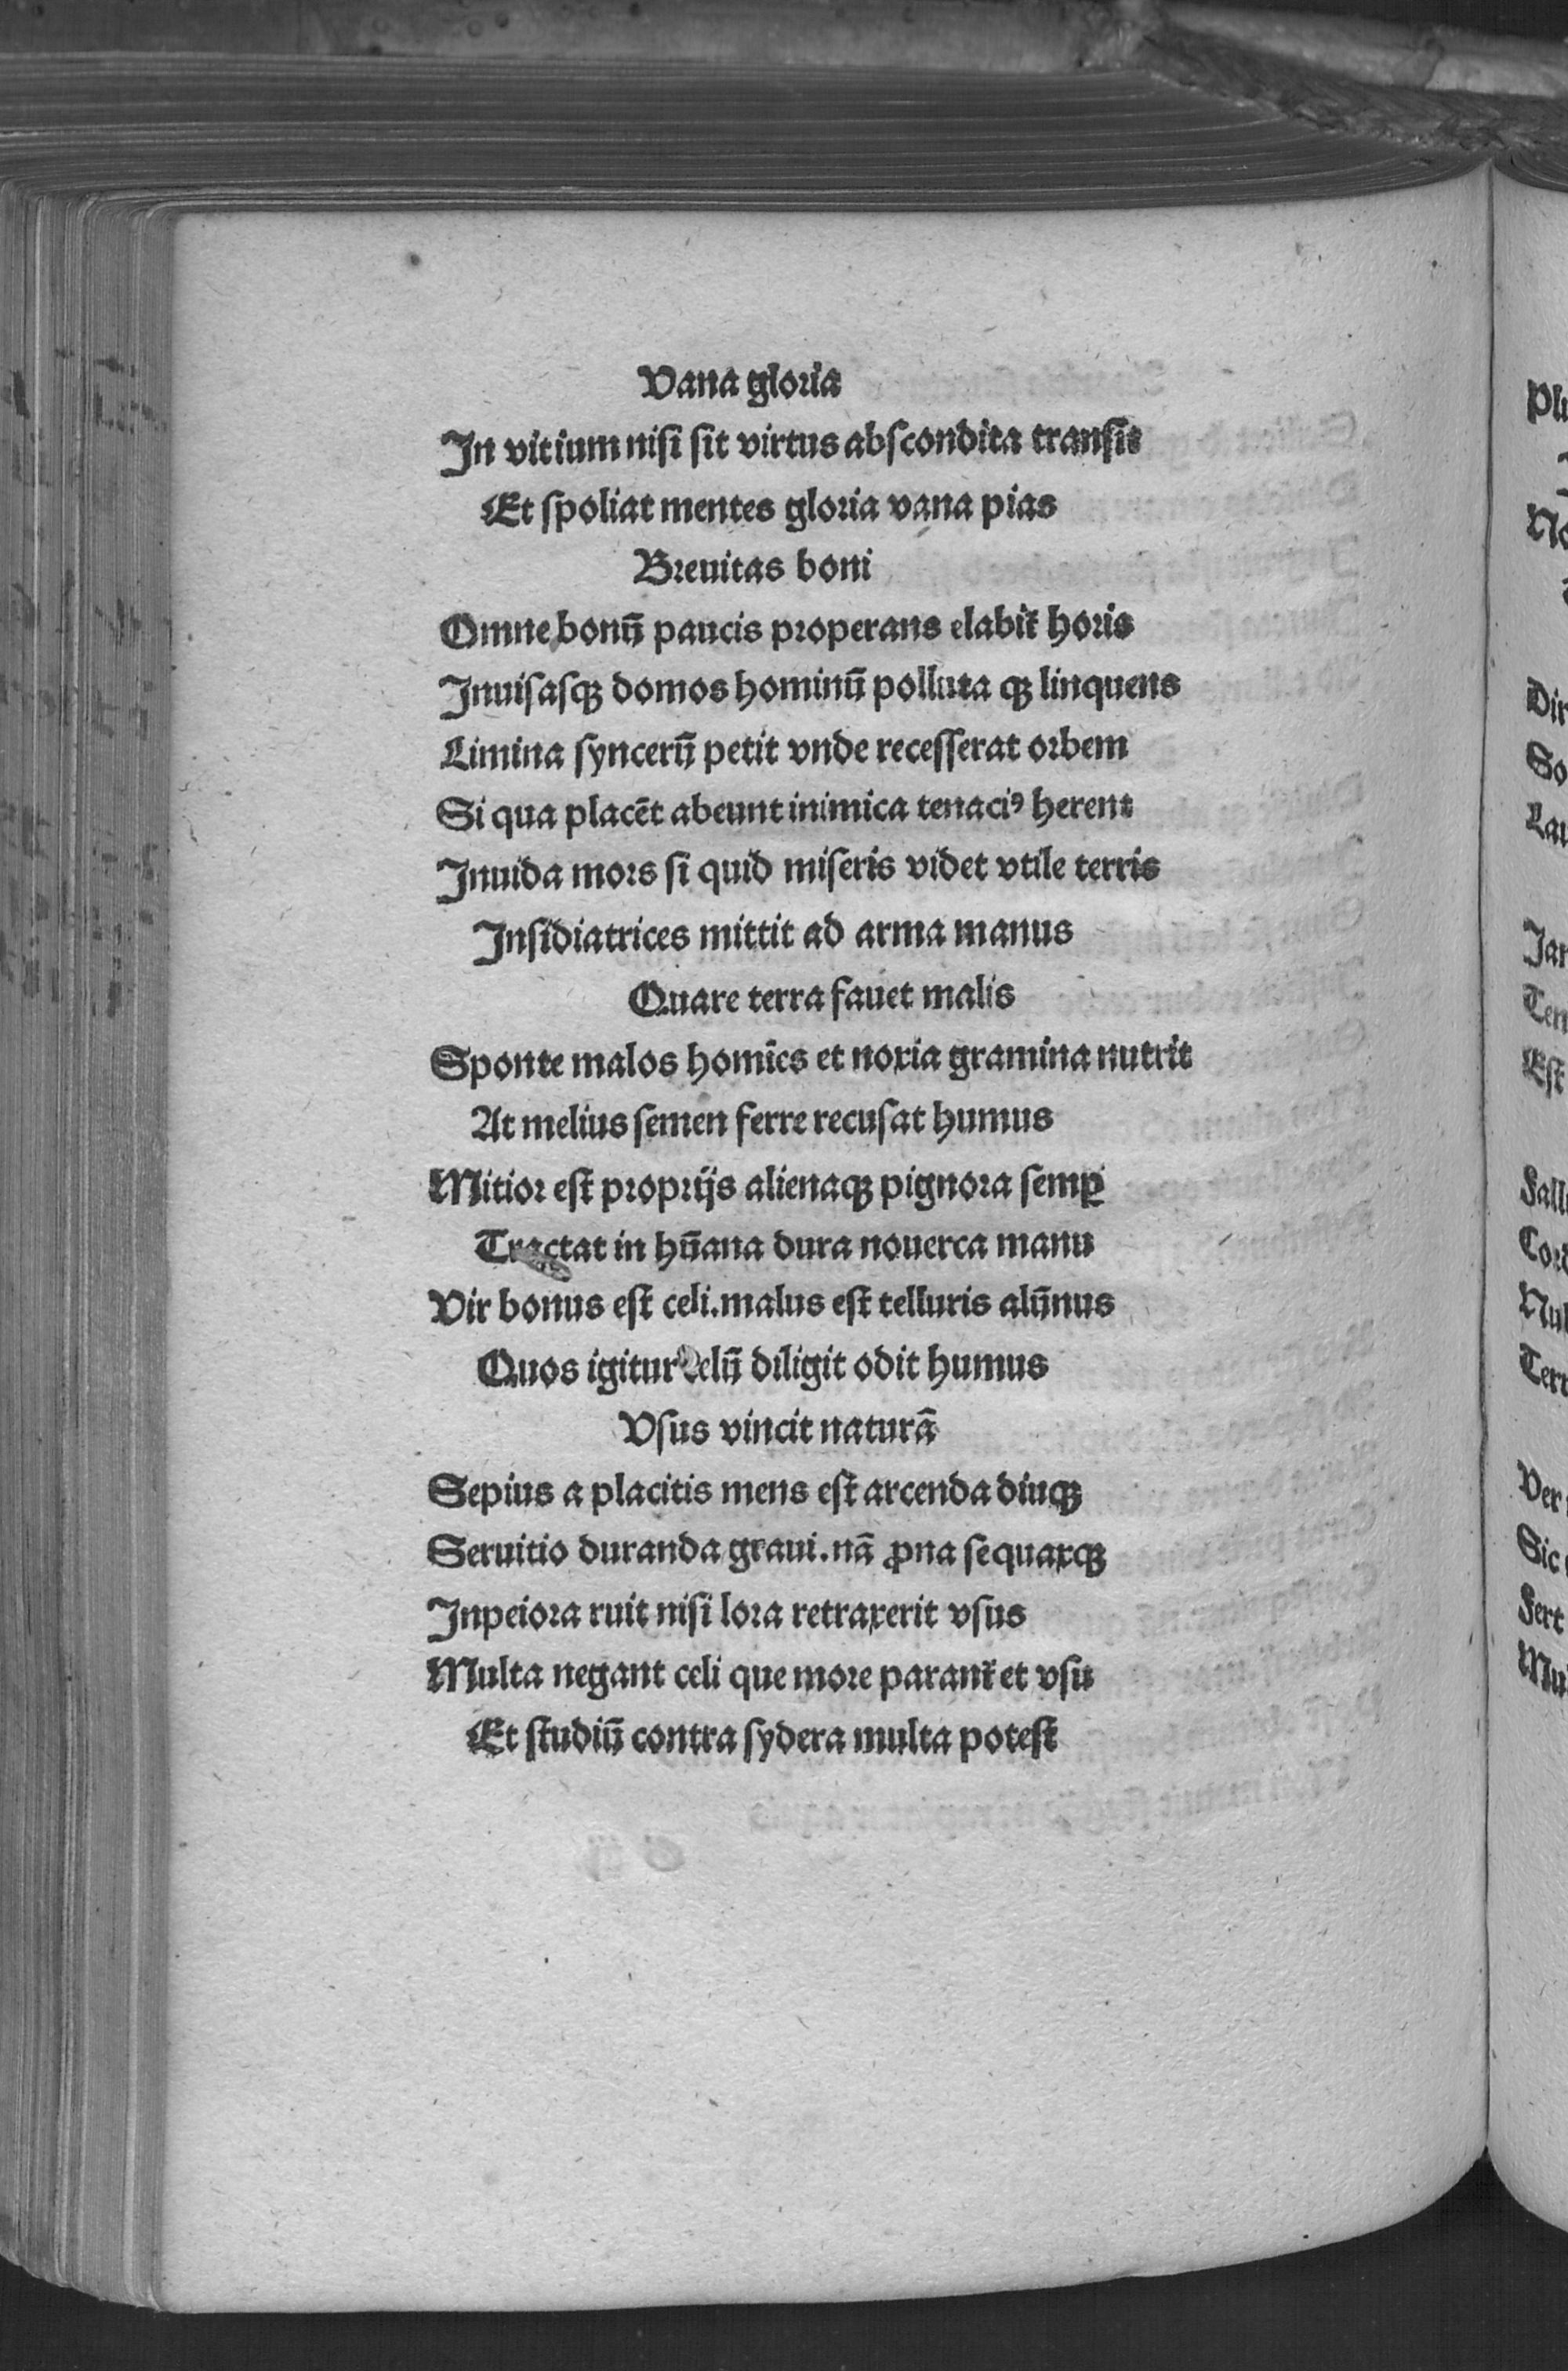 Vana gloria
In vitium nisi sit virtus abscondita transit
Et spoliat mentes gloria vana pias
Breuitas boni
Omne bonū paucis properans elabit᷑ horis
Inuisasqꝫ domos hominū polluta qꝫ linquens
Limina syncerū petit vnde recesserat orbem
Si qua placēt abeunt inimica tenaciꝰ herent
Inuida mors si quid miseris videt vtile terris
Insidiatrices mittit ad arma manus
Quare terra fauet malis
Sponte malos homīes et noxia gramina nutrit
At melius semen ferre recusat humus
Mitior est proprijs alienaqꝫ pignora semꝑ
Tractat in hūana dura nouerca manu
Vir bonus est celi.malus est telluris alūnus
Quos igitur celū diligit odit humus
Vsus vincit naturā
Sepius a placitis mens est arcenda diuqꝫ
Seruitio duranda graui.nā ꝓna sequaxqꝫ
Inpeiora ruit nisi lora retraxerit vsus
Multa negant celi que more parant᷑ et vsu
Et studiū contra sydera multa potest